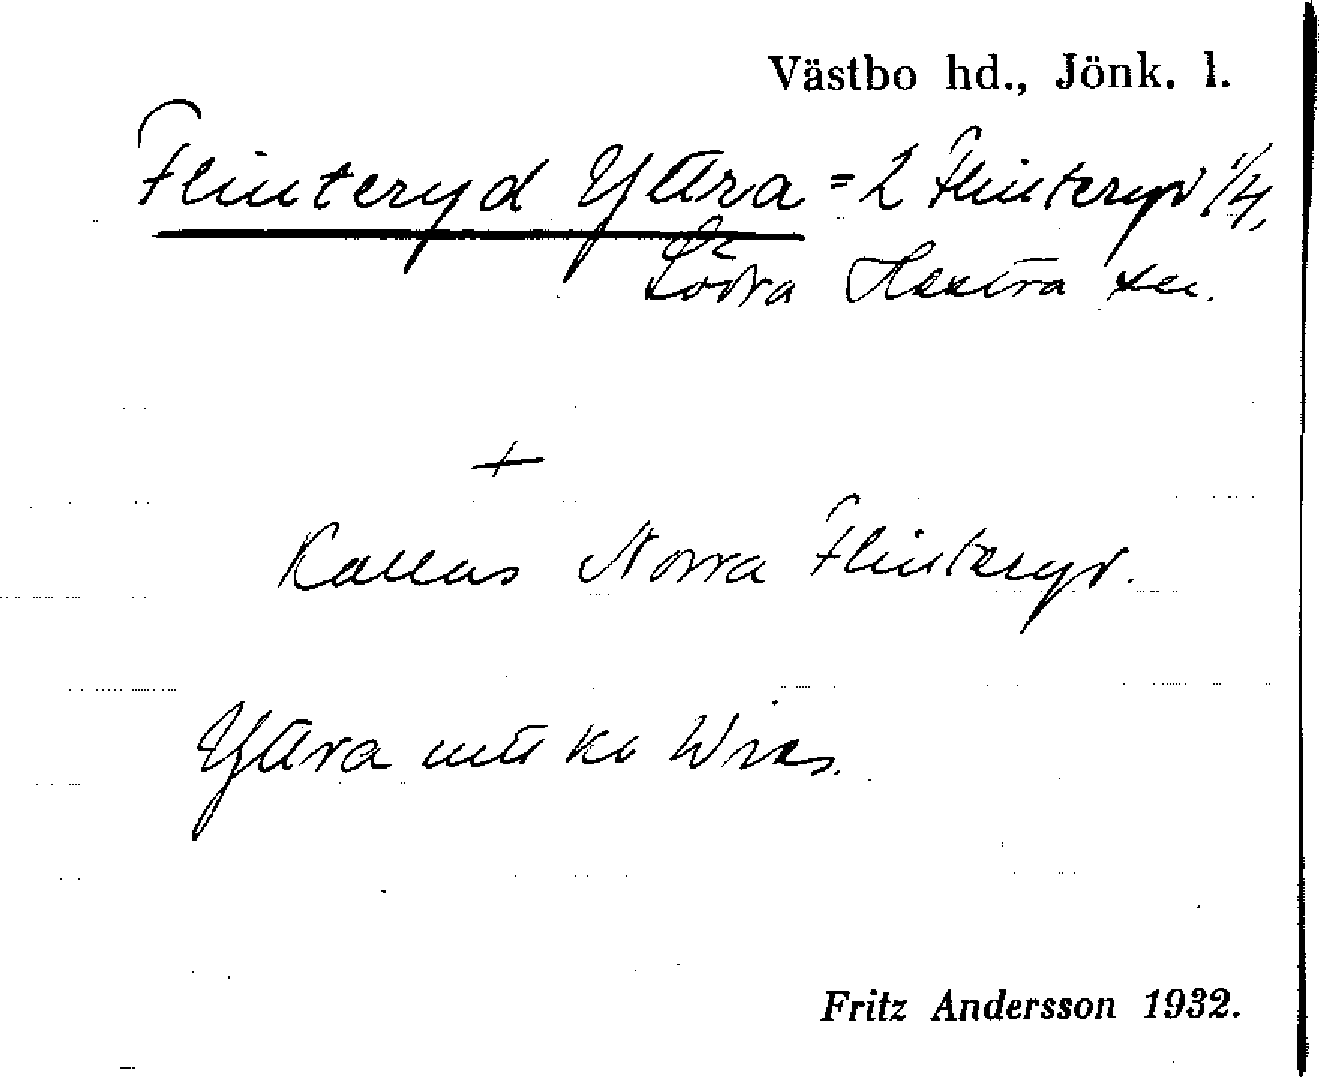 Västbo hd., Jönk. l.
Flinteryd Yttra = 2 Flinteryd 1/4,
Södra Hestra sn.
+
Kallas Norra Flinteryd.
Yttra
Fritz Andersson 1932.